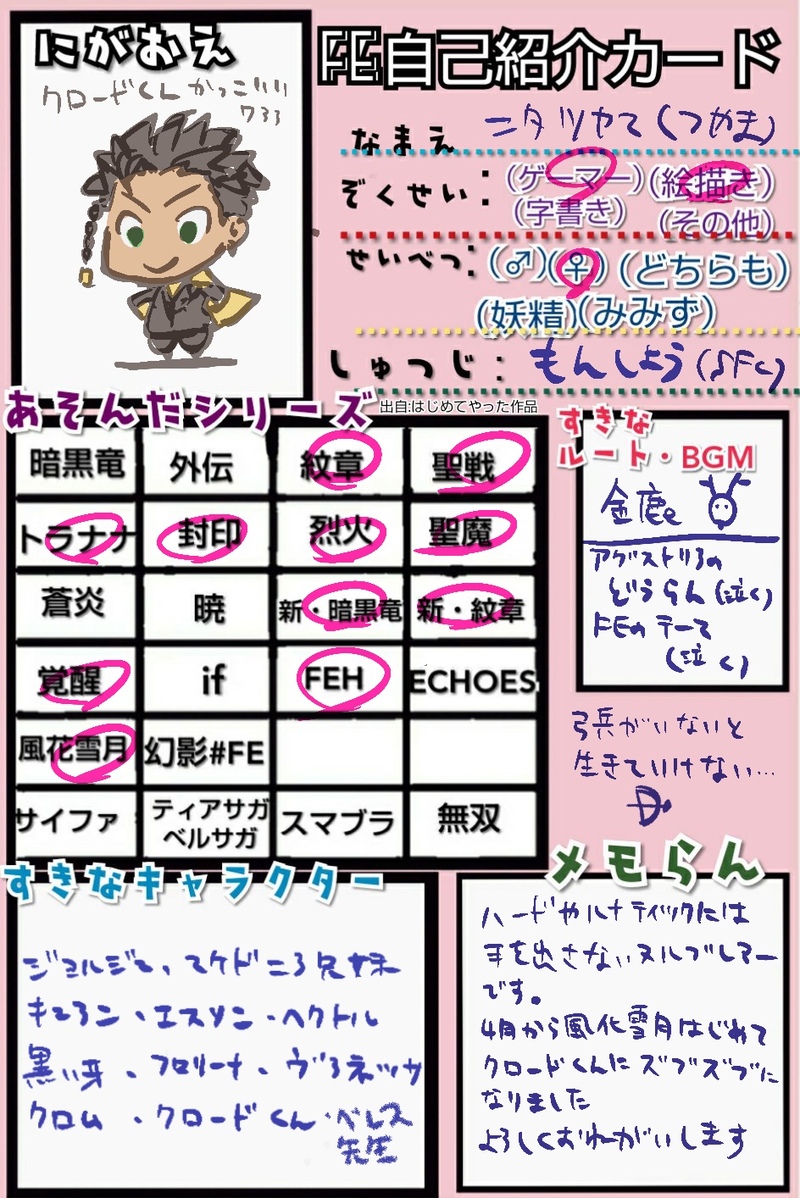 にがおえ
クロードくんかっこいい
FE自己紹介カード
なまえ ニタツヤマ(つやま)
ぞくせい: (ゲーマー)(絵描き)
(字書き) (その他)
せいべつ: (♂)(♀)(どちらも)
(妖精)(みみず)
しゅつじ: もんしょう(SFC)
あそんだシリーズ
出自:はじめてやった作品
暗黒竜 外伝 紋章 聖戦
トラナナ 封印 烈火 聖魔
蒼炎 暁 新・暗黒竜 新・紋章
覚醒 if FEH ECHOES
風花雪月 幻影#FE
サイファ ティアサガ ベルサガ スマブラ 無双
すきな
ルート・BGM
金鹿
アグストリアの
どうらん(泣く)
FEのテーマ
(泣く)
弓兵がいないと
生きていけない…
すきなキャラクター
ジョルジュ、マケドニア兄妹
キュアン・エスリン・ヘクトル
黒い牙、フロリーナ、ヴァネッサ
クロム・クロードくん・ベレス
先生
メモらん
ハードやルナティックには
手を出さないヌルプレヤー
です。
4月から風花雪月はじめて
クロードくんにズブズブに
なりました
よろしくおねがいします